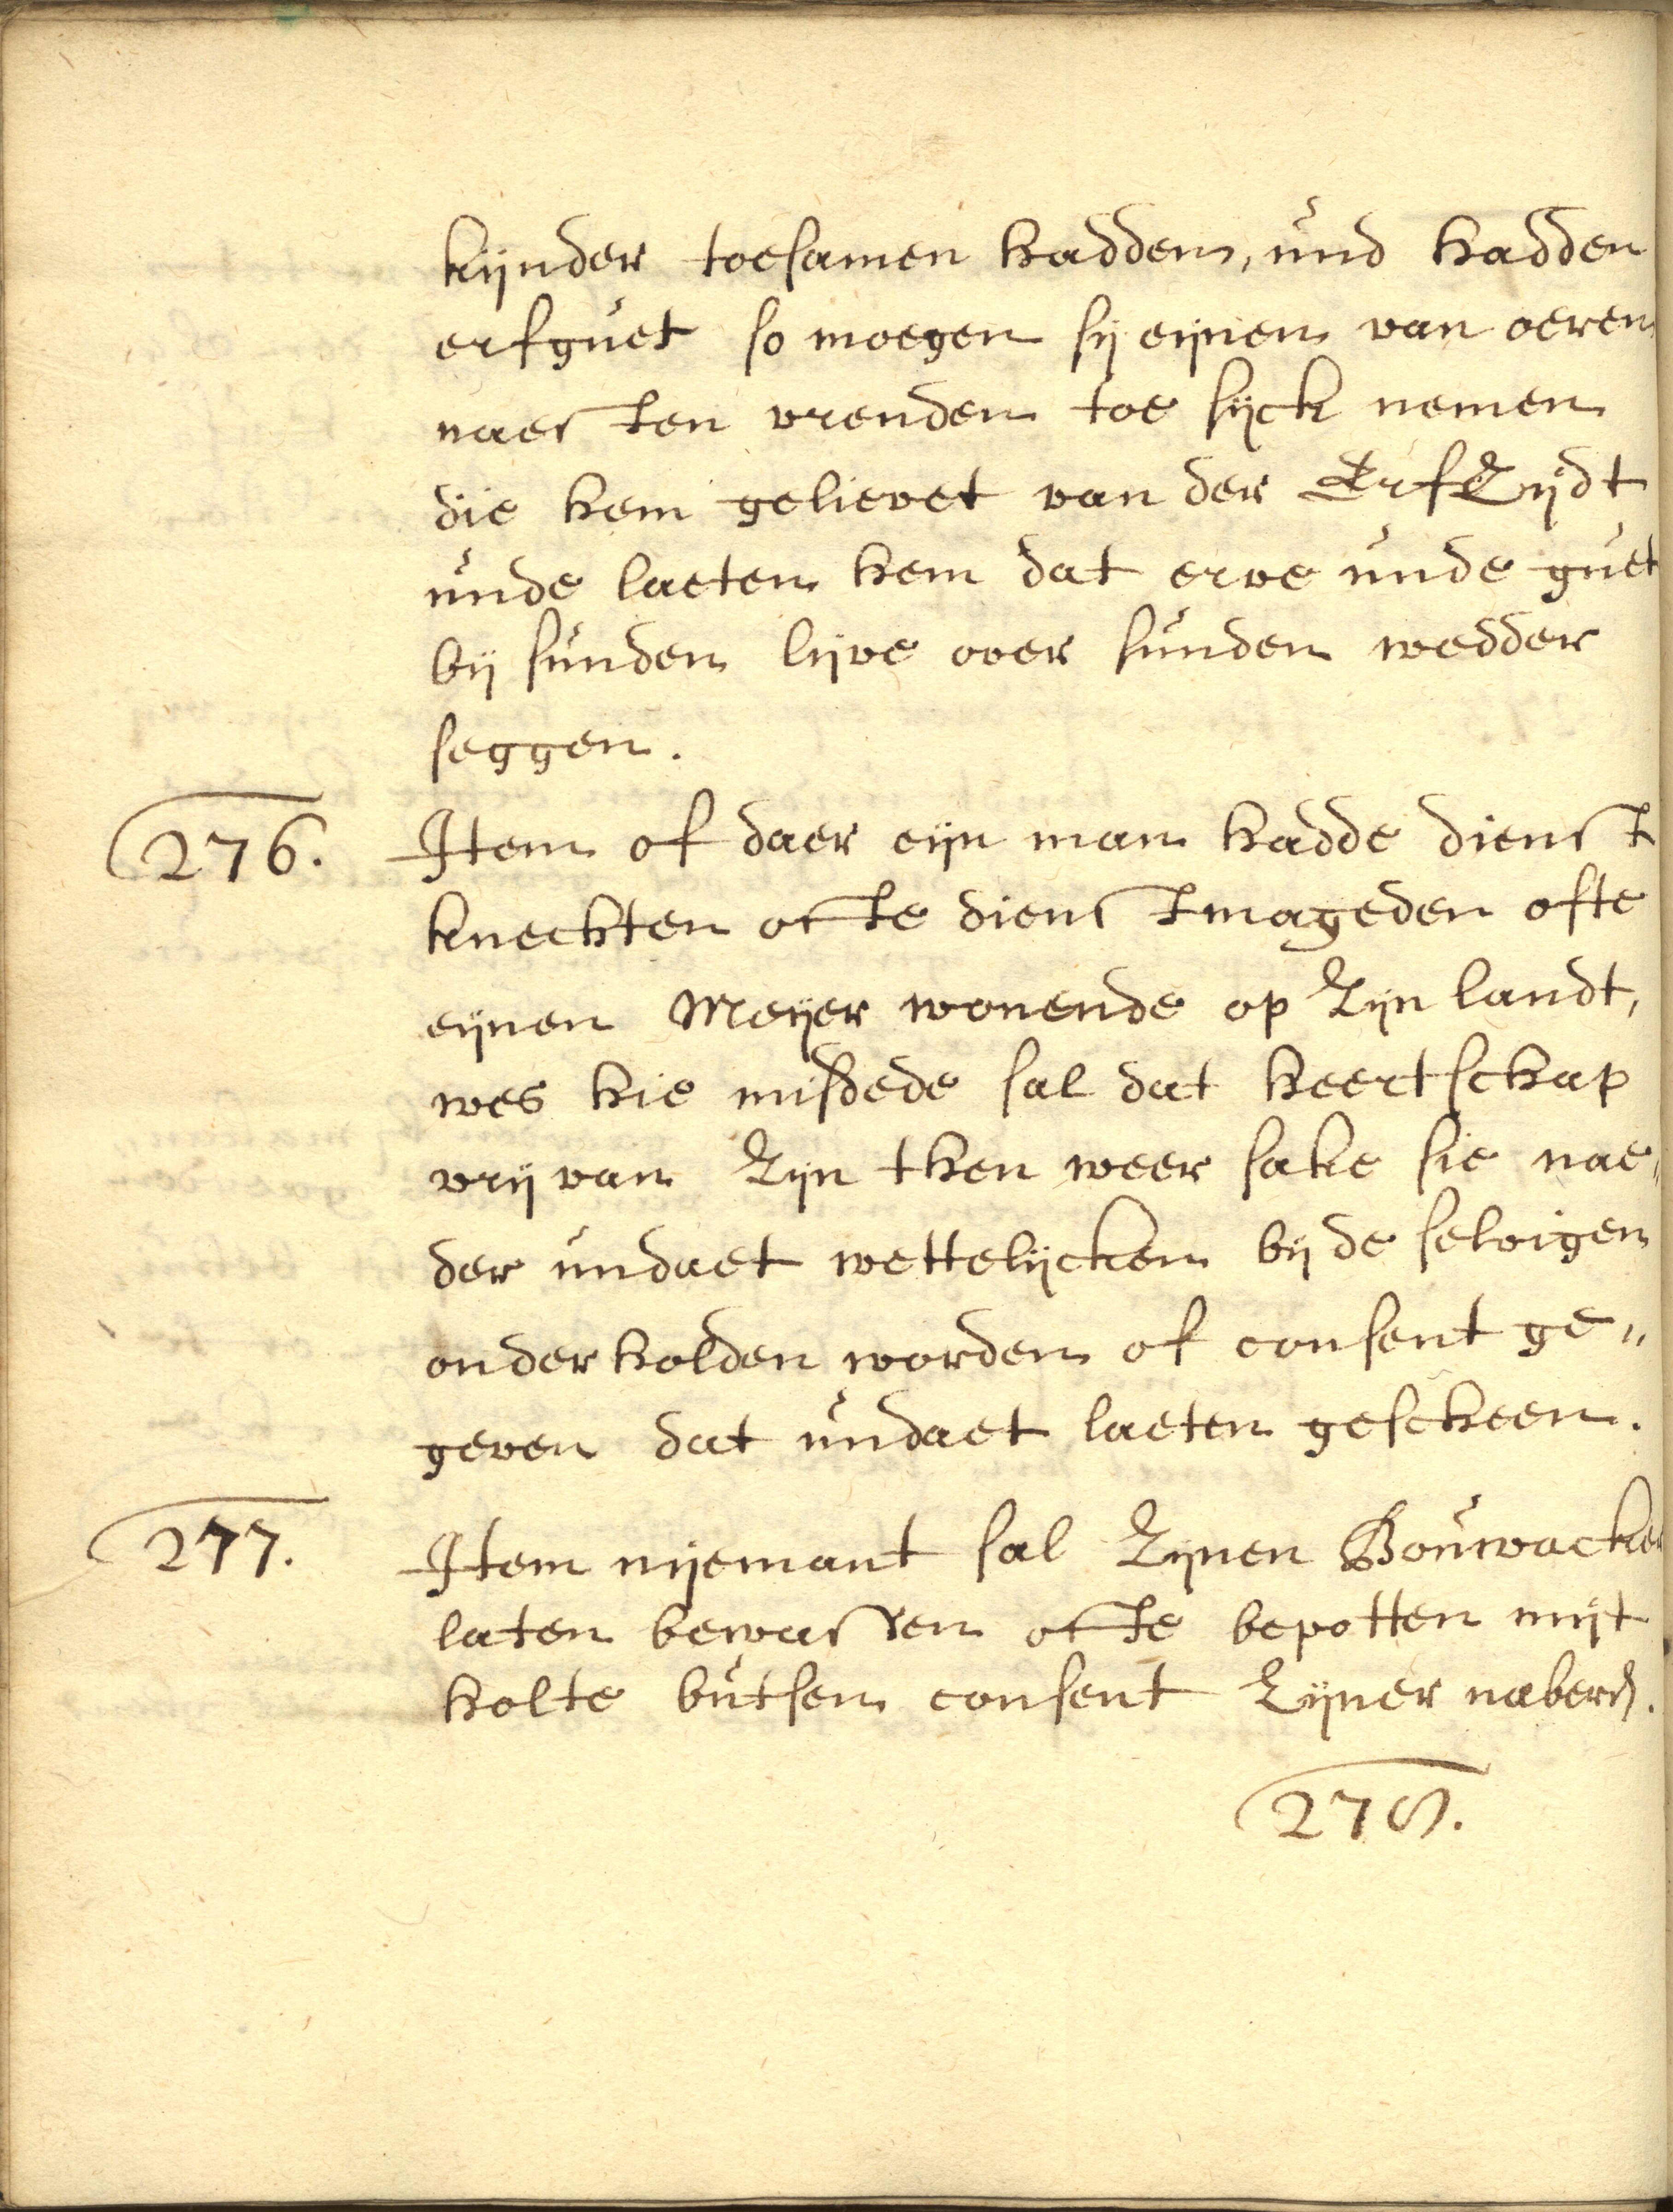 kijnder toesamen hadden, und hadden
erfguet so moegen sij eijnen van oeren
naesten vrenden toe sijck nemen
die hem gelievet van der Erf Zijdt
unde laeten hem dat erve unde guet
bij sunden lijve over sunden wedder
seggen.
276. Item of daer eijn man hadde dienst
knechten ofte dienstmageden ofte
eijnen Meijer wonende op Zijn landt,
wes hie misdede sal dat heertschap
vrij van Zijn then weer sake sie nae„
der undaet wettelijcken bij de selvigen
onderholden worden of consent ge„
geven dat undaet laeten gescheen.
277. Item nijemant sal Zijnen Bouwacker
laten bewassen ofte bepotten mijt
holte butsen consent Zijner nabers.
278.